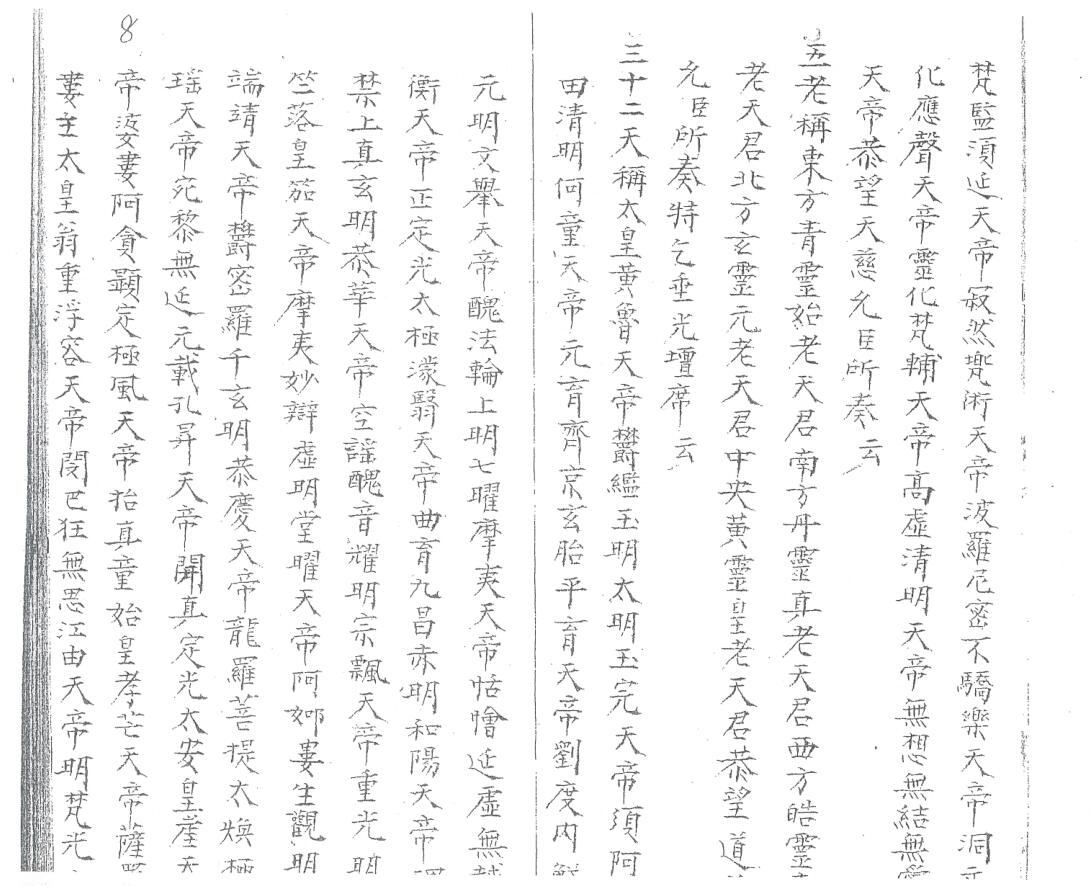 梵監須延天帝寂然兜術天帝波羅尼密不驕樂天帝洞元
化應聲天帝靈化梵輔天帝高虛清明天帝無想無結無愛
天帝恭望天慈允臣所奏云
五老稱東方青靈始老天君南方丹靈真老天君西方皓靈
老天君北方玄靈元老天君中央黃靈皇老天君恭望道
允臣所奏特乞垂光壇席云
三十二天稱太皇黃魯天帝欝繿玉明太明玉完天帝須阿
田清明何童天帝元育齊京玄胎平育天帝劉度內鮮
元明文舉天帝醜法輪上明七曜摩夷天帝恬憎延虛無越
衡天帝正定光太極濛翳天帝曲育九昌赤明和陽天帝理
禁上真玄明恭華天帝空謠醜音耀明宗飄天帝重光明
竺落皇笳天帝摩夷妙辯虛明堂曜天帝阿㛗婁生觀明
端靖天帝欝密羅千玄明恭慶天帝龍羅菩提太煥極
瑶天帝宛黎無延元載孔昇天帝開真定光太安皇崖天
帝婆婁阿貪顯定極風天帝招真童始皇孝芒天帝薩羅
婁王太皇翁重浮容天帝閔巴狂無思江由天帝明梵光
8